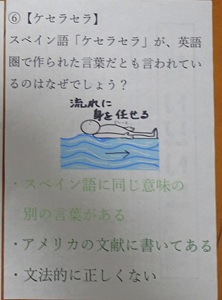 ⑥【ケセラセラ】
スペイン語「ケセラセラ」が、英語
圏で作られた言葉だとも言われてい
るのはなぜでしょう?
流れに
身を任せる
・スペイン語に同じ意味の
別の言葉がある
・アメリカの文献に書いてある
・文法的に正しくない